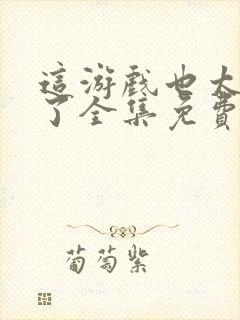 這游戲也太
了全集免費
葡萄紫